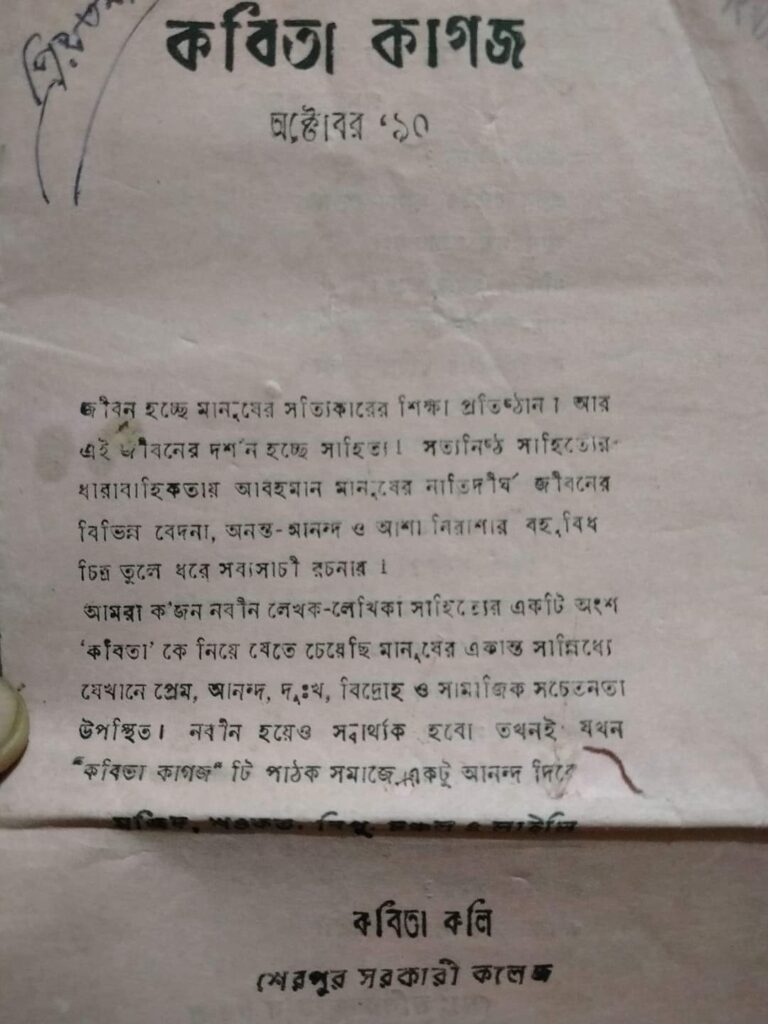 প্রিয়তম
কবিতা কাগজ
অক্টোবর ‘৯০
জীবন হচ্ছে মানুষের সত্যিকারের শিক্ষা প্রতিষ্ঠান। আর
এই জীবনের দর্শন হচ্ছে সাহিত্য। সত্যনিষ্ঠ সাহিত্যের
ধারাবাহিকতায় আবহমান মানুষের নাতিদীর্ঘ জীবনের
বিভিন্ন বেদনা, অনন্ত-আনন্দ ও আশা নিরাশার বহুবিধ
চিত্র তুলে ধরে সব্যসাচী রচনার।
আমরা ক’জন নবীন লেখক-লেখিকা সাহিত্যের একটি অংশ
‘কবিতা’ কে নিয়ে যেতে চেয়েছি মানুষের একান্ত সান্নিধ্যে
যেখানে প্রেম, আনন্দ, দুঃখ, বিদ্রোহ ও সামাজিক সচেতনতা
উপস্থিত। নবীন হয়েও সন্বার্থক হবো তখনই যখন
“কবিতা কাগজ” টি পাঠক সমাজে একটু আনন্দ দিবে
কবিতা কলি
শেরপুর সরকারী কলেজ